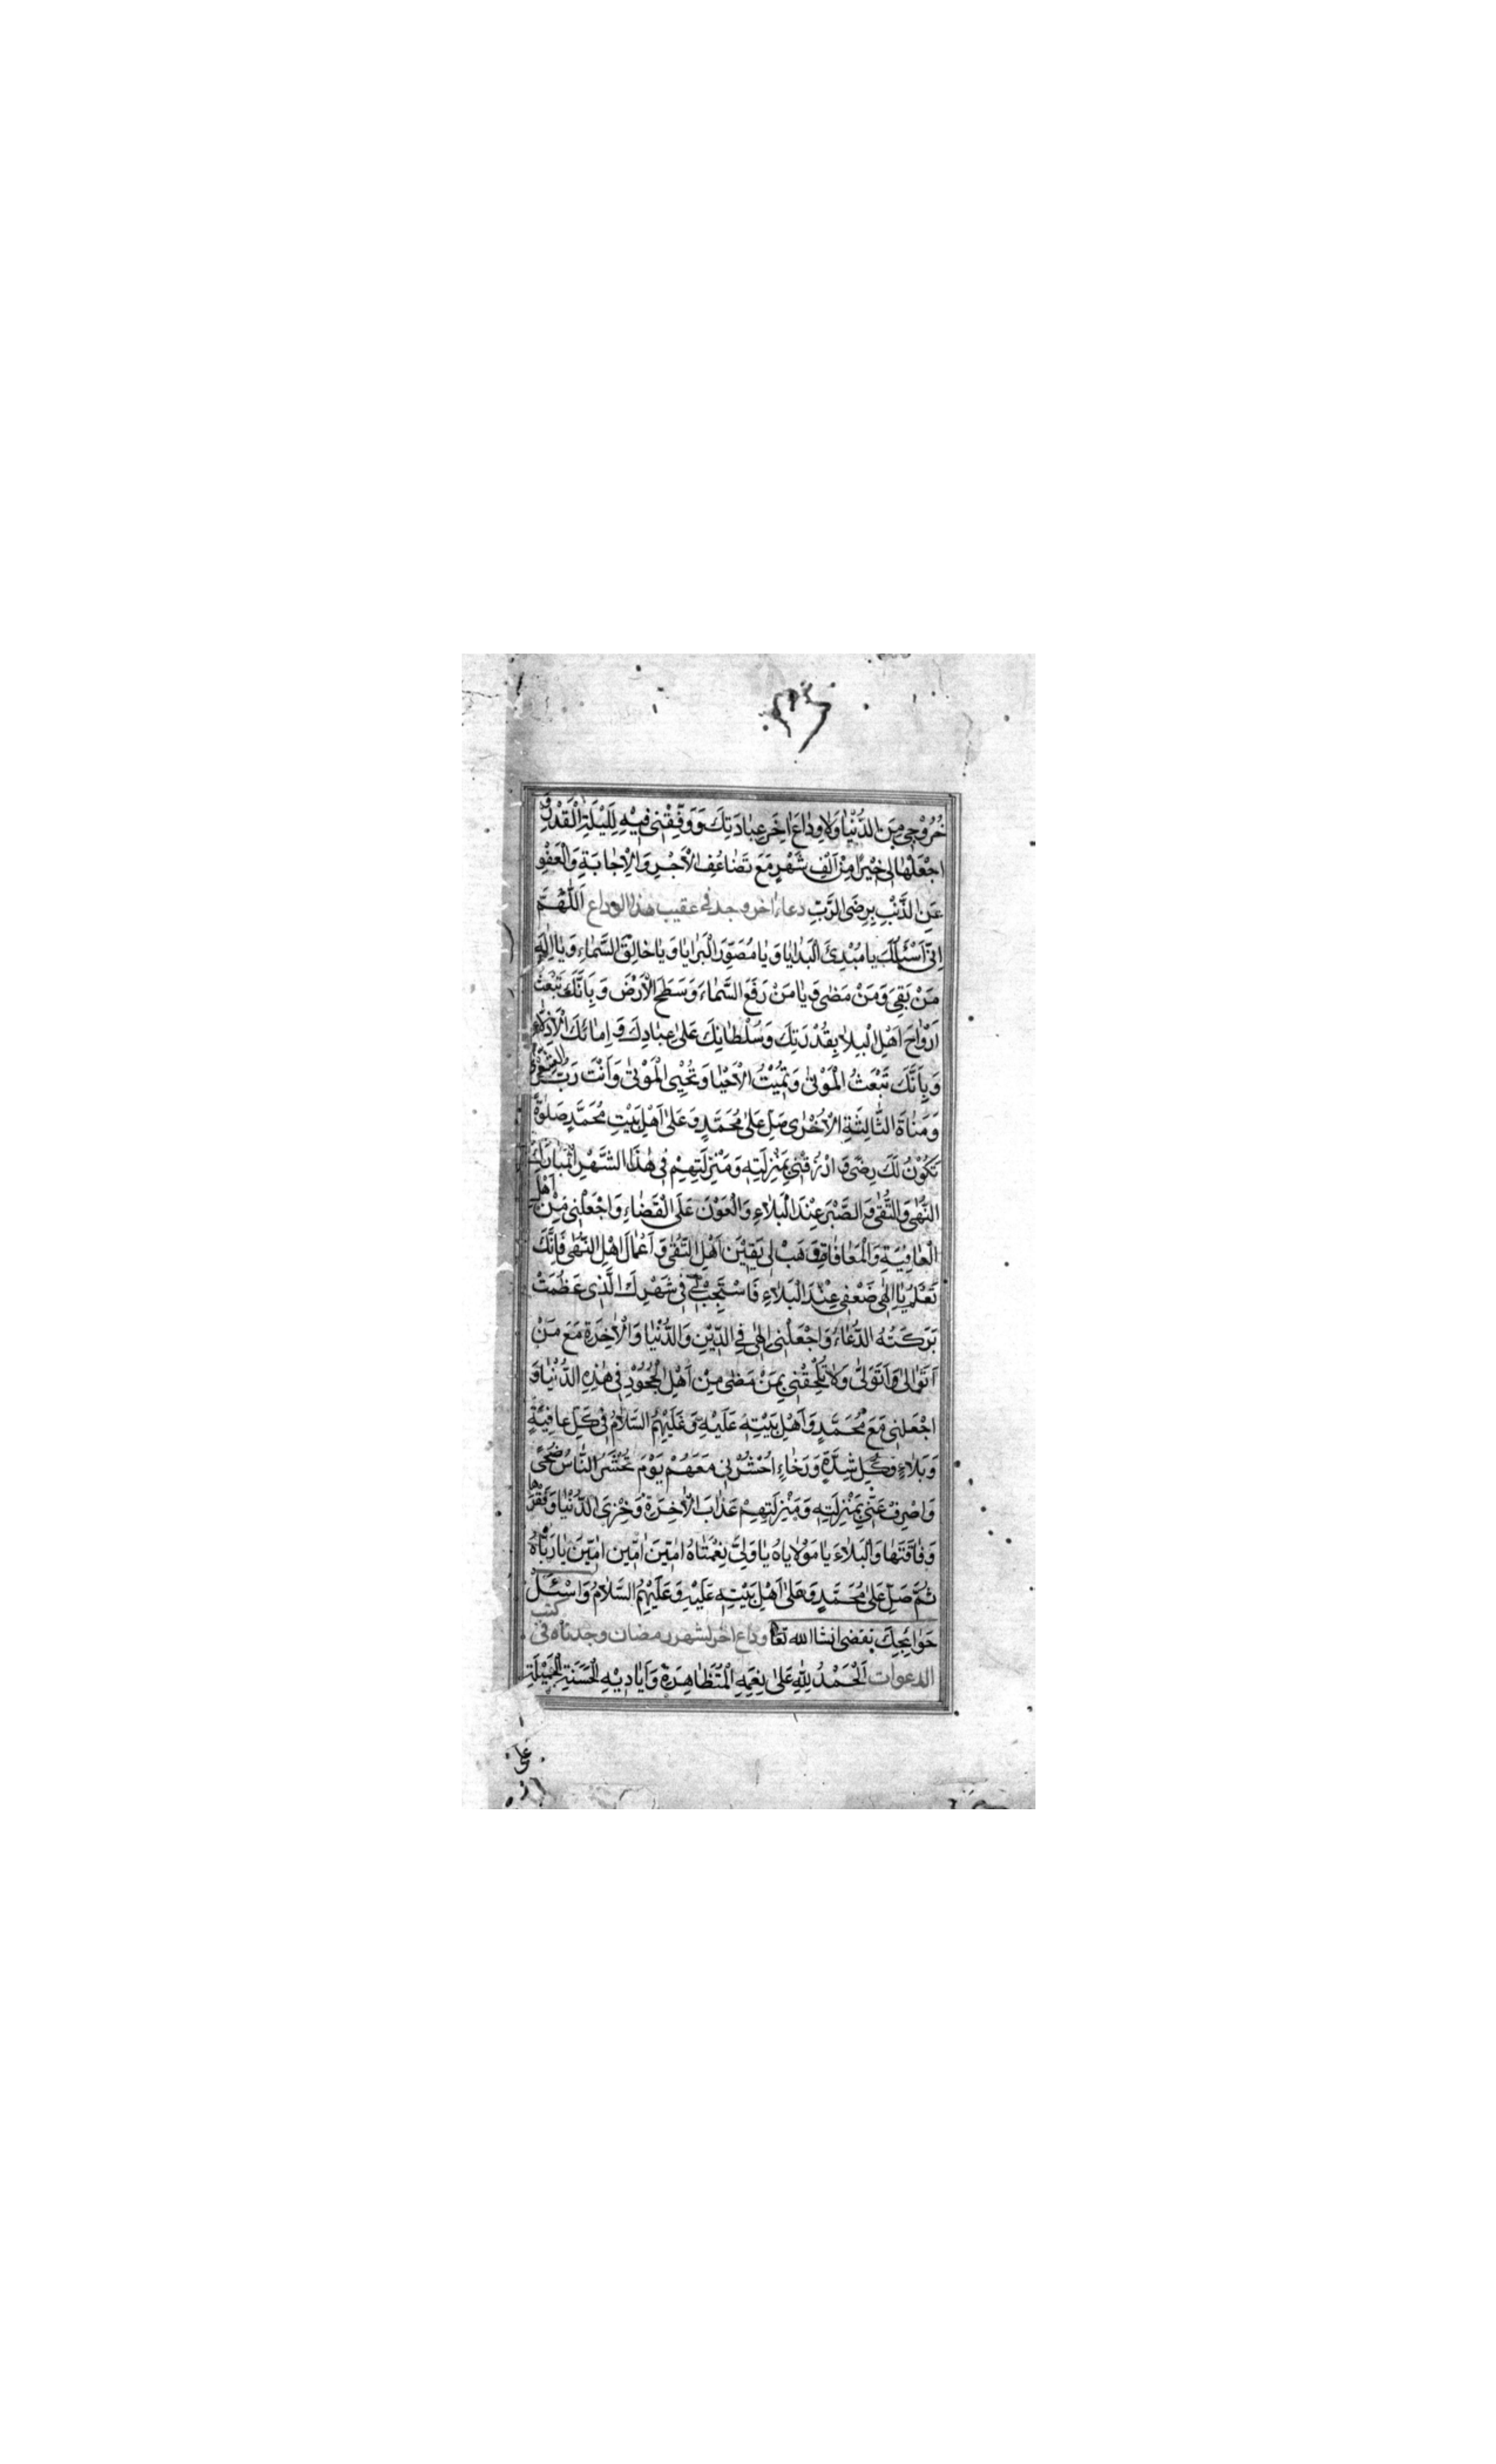 خُرُوْجِيْ مِنَ الدُّنْيَا وَلَا وِدَاعَ اٰخِرِ عِبَادَتِكَ وَ وَفِّقْنِيْ فِيْهِ لِلَيْلَةِ الْقَدْرِ وَ
اجْعَلْهَا لِيْ خَيْرًا مِنْ اَلْفِ شَهْرٍ مَعَ تَضَاعُفِ الْاَجْرِ وَ الْاِجَابَةِ وَ الْعَفْوِ
عَنِ الذَّنْبِ بِرِضَى الرَّبِّ دعاء اخر وجد في عقيب هذا الوداع اَللّٰهُمَّ
اِنِّيْ اَسْئَلُكَ يَا مُبْدِئَ الْبَدَايَا وَ يَا مُصَوِّرَ الْبَرَايَا وَ يَا خَالِقَ السَّمَاءِ وَ يَا اِلٰهَ
مَنْ بَقِيَ وَ مَنْ مَضٰى وَ يَا مَنْ رَفَعَ السَّمَاءَ وَ سَطَحَ الْاَرْضَ وَ بِاَنَّكَ تَبْعَثُ
اَرْوَاحَ اَهْلِ الْبِلَا بِقُدْرَتِكَ وَ سُلْطَانِكَ عَلٰى عِبَادِكَ وَ اِمَائِكَ الْاَذِلَّاءِ
وَ بِاَنَّكَ تَبْعَثُ الْمَوْتٰى وَ تُمِيْتُ الْاَحْيَا وَ تُحْيِي الْمَوْتٰى وَ اَنْتَ رَبُّ الشِّعْرٰى
وَ مَنَاةَ الثَّالِثَةِ الْاُخْرٰى صَلِّ عَلٰى مُحَمَّدٍ وَ عَلٰى اَهْلِ بَيْتِ مُحَمَّدٍ صَلٰوةً
تَكُوْنُ لَكَ رِضًى وَ ارْزُقْنِيْ بِمَنْزِلَتِهٖ وَ مَنْزِلَتِهِمْ فِيْ هٰذَا الشَّهْرِ الْمُبَارَكِ
النُّهٰى وَ التُّقٰى وَ الصَّبْرَ عِنْدَ الْبَلَاءِ وَ الْعَوْنَ عَلَى الْقَضَاءِ وَ اجْعَلْنِيْ مِنْ اَهْلِ
الْعَافِيَةِ وَ الْمُعَافَاةِ وَ هَبْ لِيْ يَقِيْنَ اَهْلِ التُّقٰى وَ اَعْمَالَ اَهْلِ النُّهٰى فَاِنَّكَ
تَعْلَمُ يَا اِلٰهِيْ ضَعْفِيْ عِنْدَ الْبَلَاءِ فَاسْتَجِبْ لِيْ فِيْ شَهْرِكَ الَّذِيْ عَظُمَتْ
بَرَكَتُهُ الدُّعَاءَ وَ اجْعَلْنِيْ اِلٰهِيْ فِي الدِّيْنِ وَ الدُّنْيَا وَ الْاٰخِرَةِ مَعَ مَنْ
اَتَوَالٰى وَ اَتَوَلّٰى وَ لَا تُلْحِقْنِيْ بِمَنْ مَضٰى مِنْ اَهْلِ الْجُحُوْدِ فِيْ هٰذِهِ الدُّنْيَا وَ
اجْعَلْنِيْ مَعَ مُحَمَّدٍ وَ اَهْلِ بَيْتِهٖ عَلَيْهِ وَ عَلَيْهِمُ السَّلَامُ فِيْ كُلِّ عَافِيَةٍ
وَ بَلَاءٍ وَ كُلِّ شِدَّةٍ وَ رَخَاءٍ اُحْشُرْنِيْ مَعَهُمْ يَوْمَ تُحْشَرُ النَّاسُ ضُحًى
وَ اصْرِفْ عَنِّيْ بِمَنْزِلَتِهٖ وَ مَنْزِلَتِهِمْ عَذَابَ الْاٰخِرَةِ وَ خِزْيَ الدُّنْيَا وَ فَقْرَهَا
وَ فَاقَتَهَا وَ الْبَلَاءَ يَا مَوْلَايَاهُ يَا وَلِيَّ نِعْمَتَاهُ اٰمِيْنَ اٰمِيْنَ اٰمِيْنَ يَا رَبَّاهُ
ثُمَّ صَلِّ عَلٰى مُحَمَّدٍ وَ عَلٰى اَهْلِ بَيْتِهٖ عَلَيْهِ وَ عَلَيْهِمُ السَّلَامُ وَ اسْئَلْ
حَوَائِجَكَ تقضى انشا الله تعا وداع اخر لشهر رمضان وجدناه في كتب
الدعوات اَلْحَمْدُ لِلّٰهِ عَلٰى نِعَمِهِ الْمُتَظَاهِرَةِ وَ اَيَادِيْهِ الْحَسَنَةِ الْجَمِيْلَةِ
على